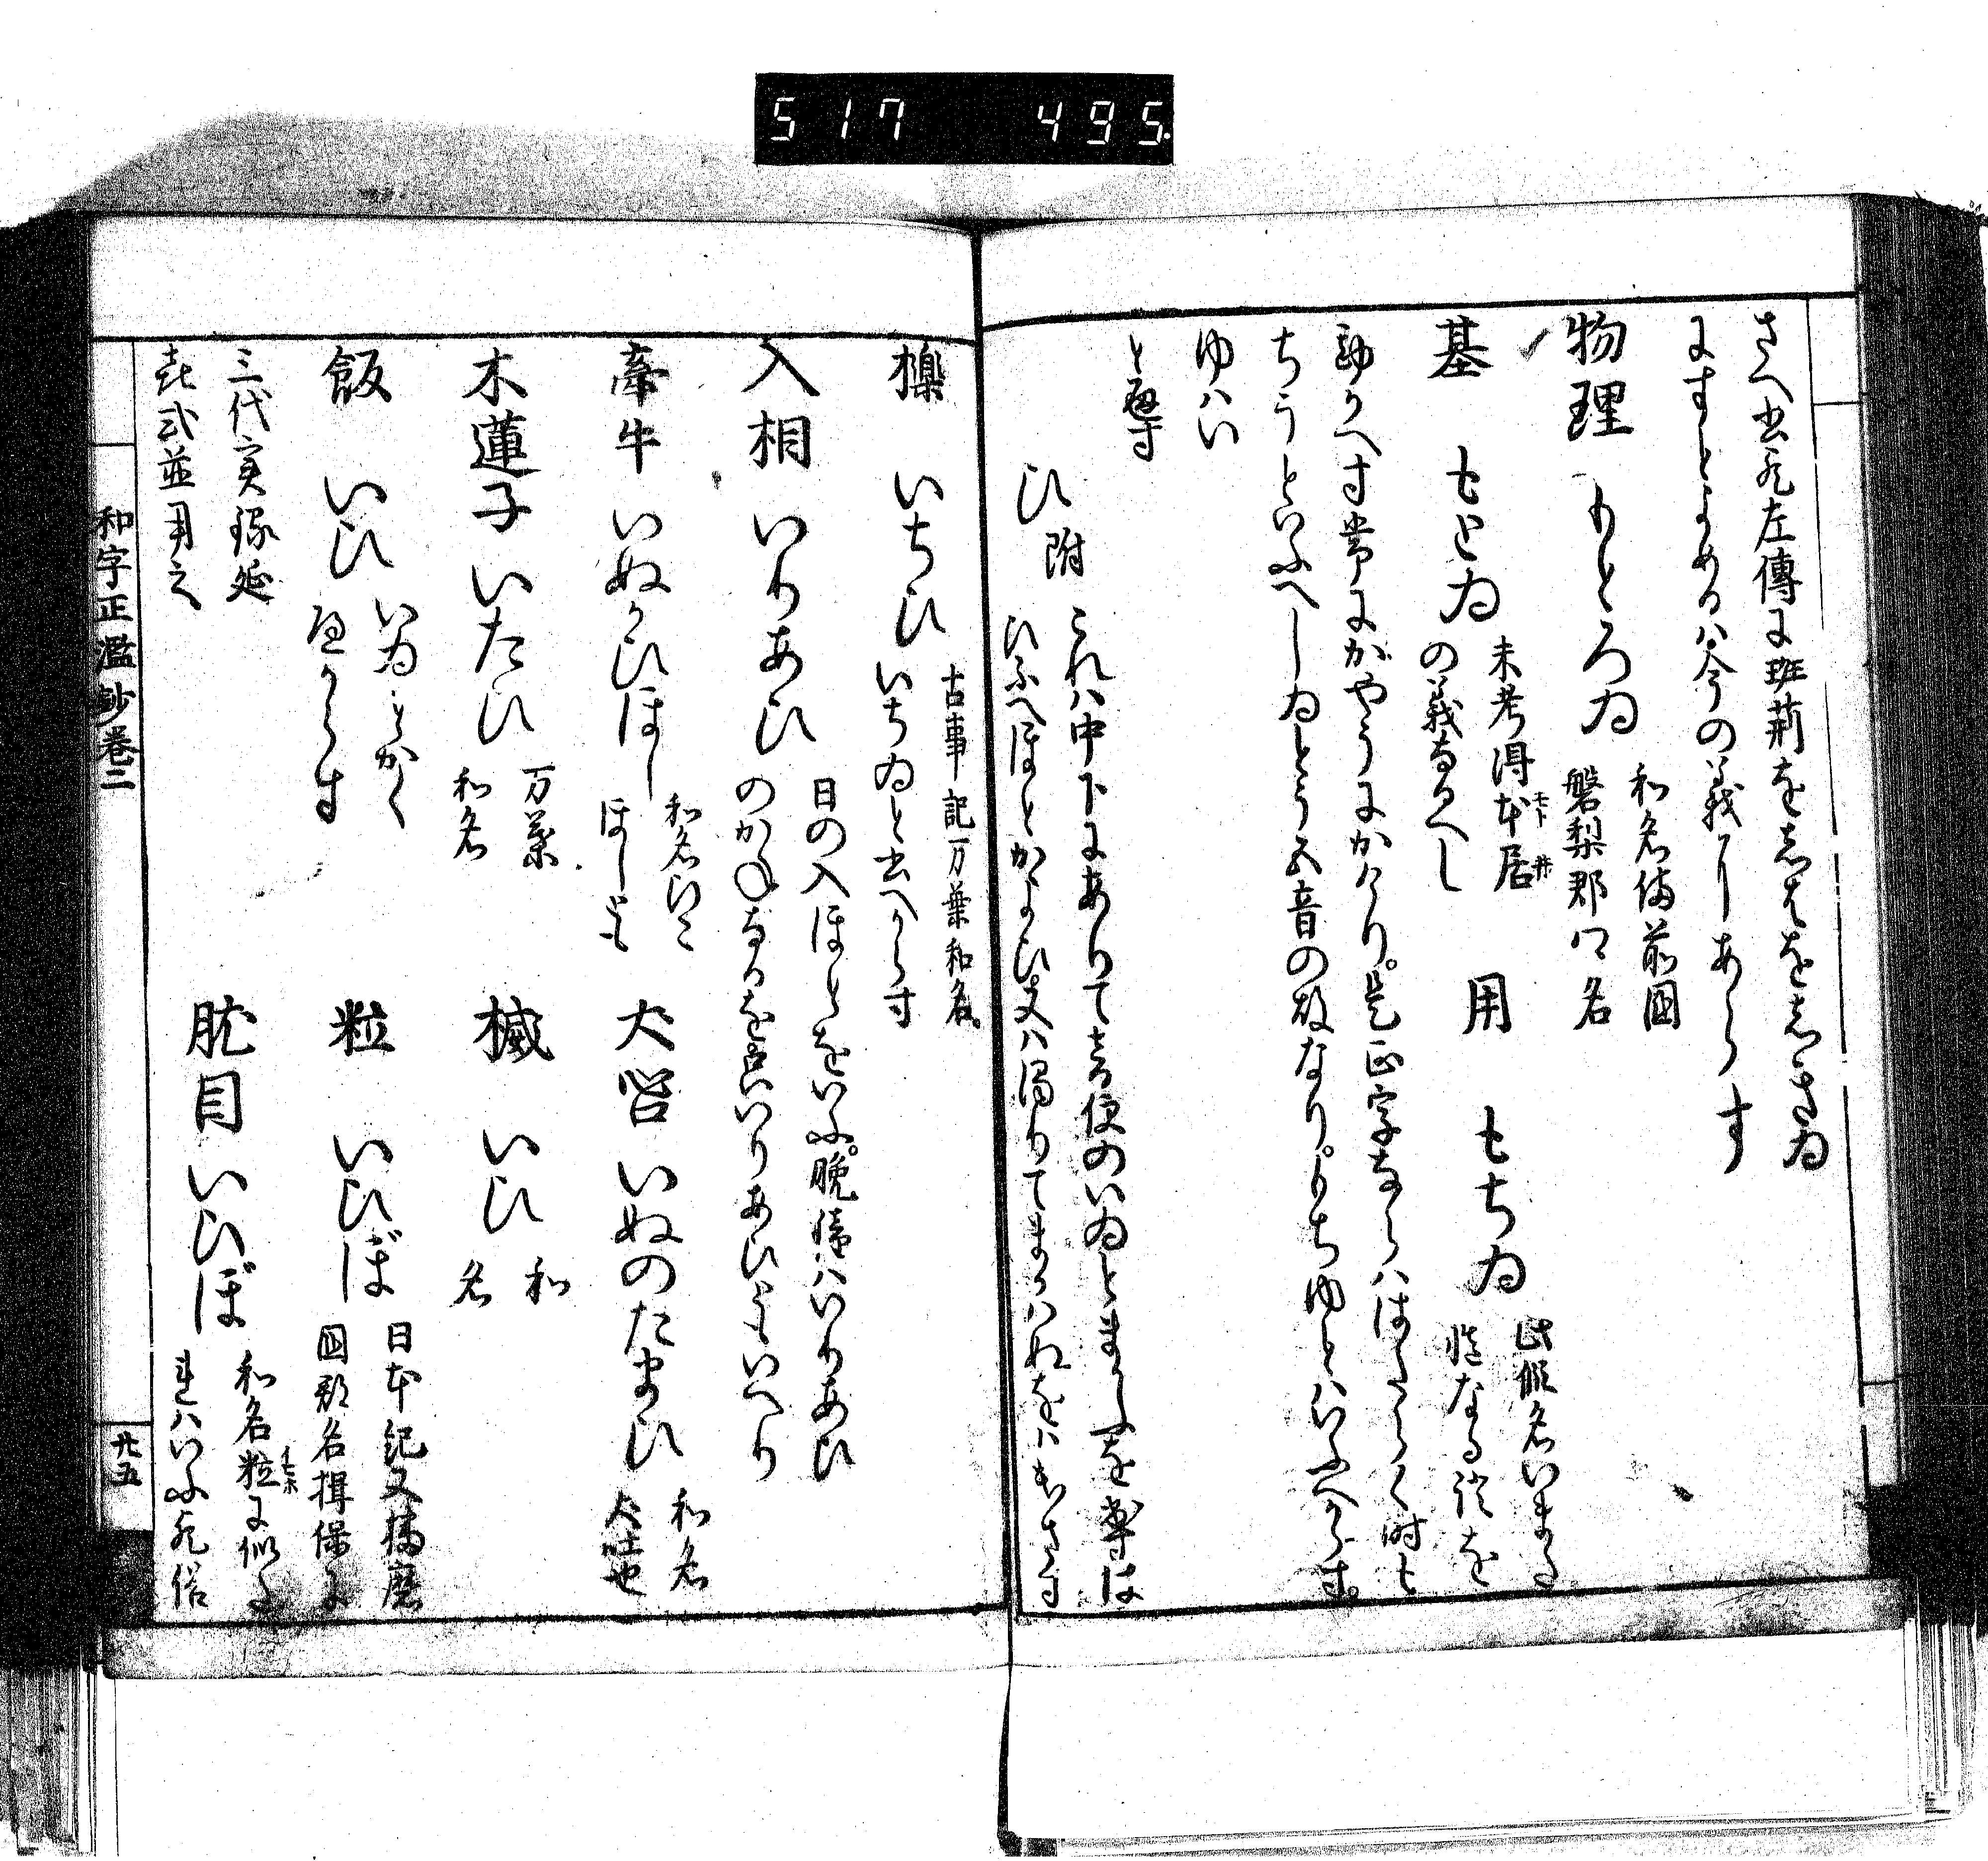 517 495.
さへ出たり左傳に班荊をしきをしきゐ
にすとよめるは今の義にあらす
物理 もとろゐ 和名備前國
磐梨郡の名
基 もとゐ 未考得本居
の義なるへし
用 もちゐ 此假名いまた
慥なる證を
勘かへす常にがやうにかけり。是正字ならははたらく時も
ちうといふへしゐとう五音の故なり。もちゆとはいふへからす。
ゆはい
と
ひ 附 これは中下にありて音便のいゐとまかふを
いふへほとかよひ又は濁りてまかはぬをは
櫟 いちひ 古事記万葉和名。
いちゐと書へからす
入相 いりあひ 日の入ほとをいふ。晩鐘はいりあひ
のかねなるを只いりあひともいへり
牽牛 いぬかひほし 和名ひこ
ほしとも
犬 いぬのたまひ 和名
犬吐也
木蓮子 いたひ 万葉
和名
槭 いひ 和
名
飯 いひ いゐとかく
へからす
粒 いひぼ 日本紀又播磨
國郡名揖保に
三代実録延
喜式並用之
肬目 いひぼ 和名粒に似た
れはいふ歟俗
和字正濫鈔卷二
廿五